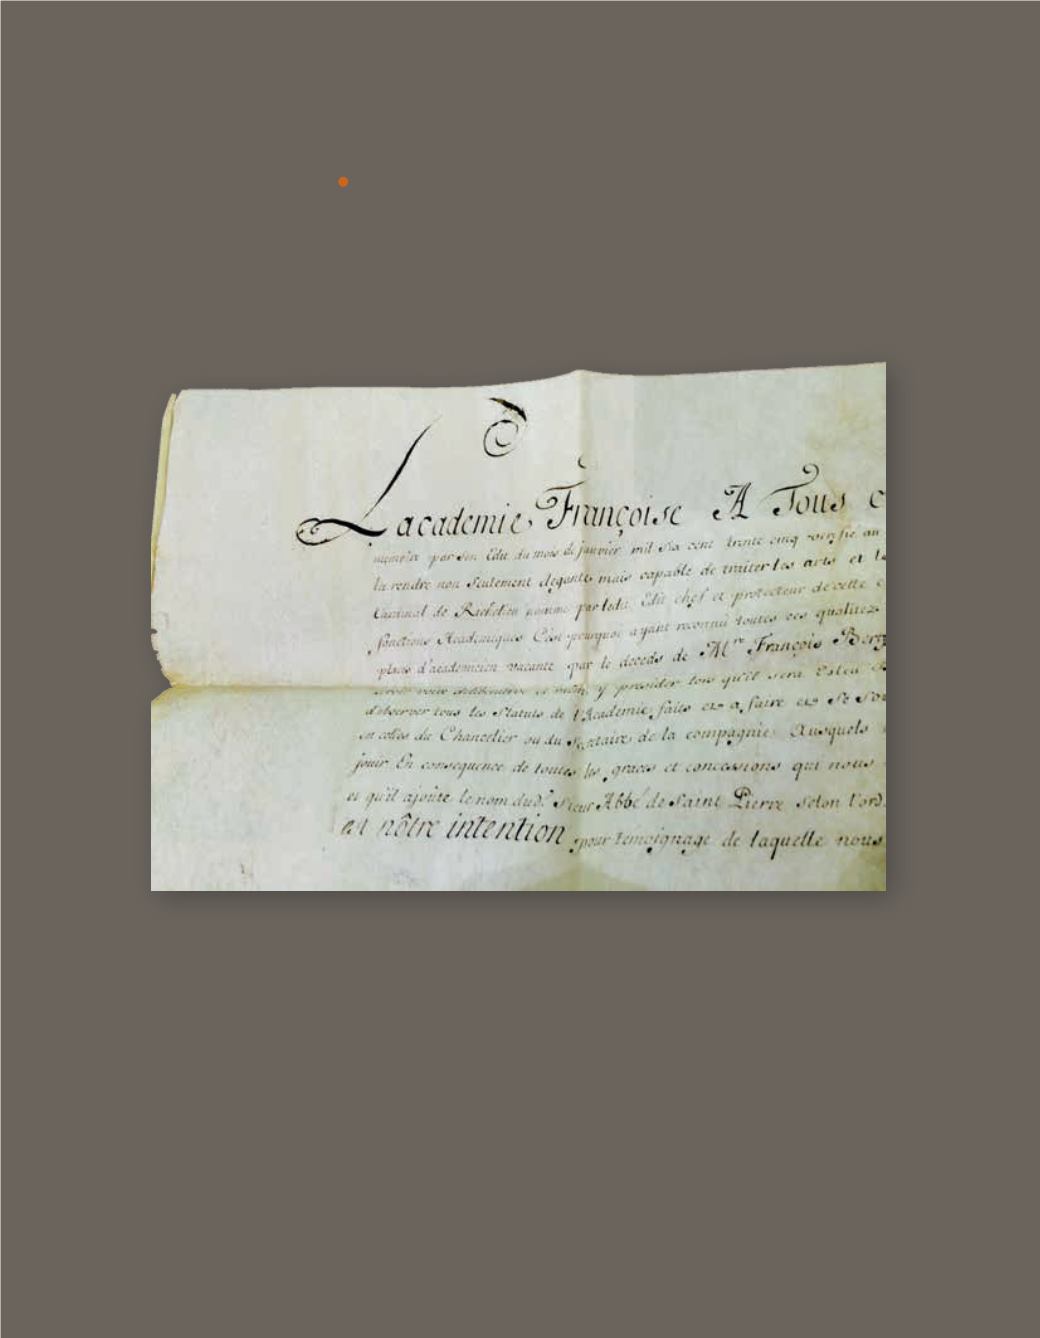 L'academie Françoise A Tous c
memoire par son Edit du mois de janvier mil six cent trente cinq verifie au
la rendre non seulement elegante mais capable de traiter les arts et le
Cardinal de Richelieu nomme par ledit Edit chef et protecteur de cette c
fonctions Academiques C'est pourquoi ayant reconnu toutes ces qualitez
place d'academicien vacante par le deceds de M.re François Berg
y presider lors qu'il sera Esleu
d'observer tous les Statuts de l'Academie faits et a faire et
du Chancelier ou du Secretaire de la compagnie Ausquels
jouir En consequence de toutes les graces et concessions qui nous
et qu'il ajoûte le nom dud.t Sieur Abbé de Saint Pierre selon l'ord
est nôtre intention pour temoignage de laquelle nous